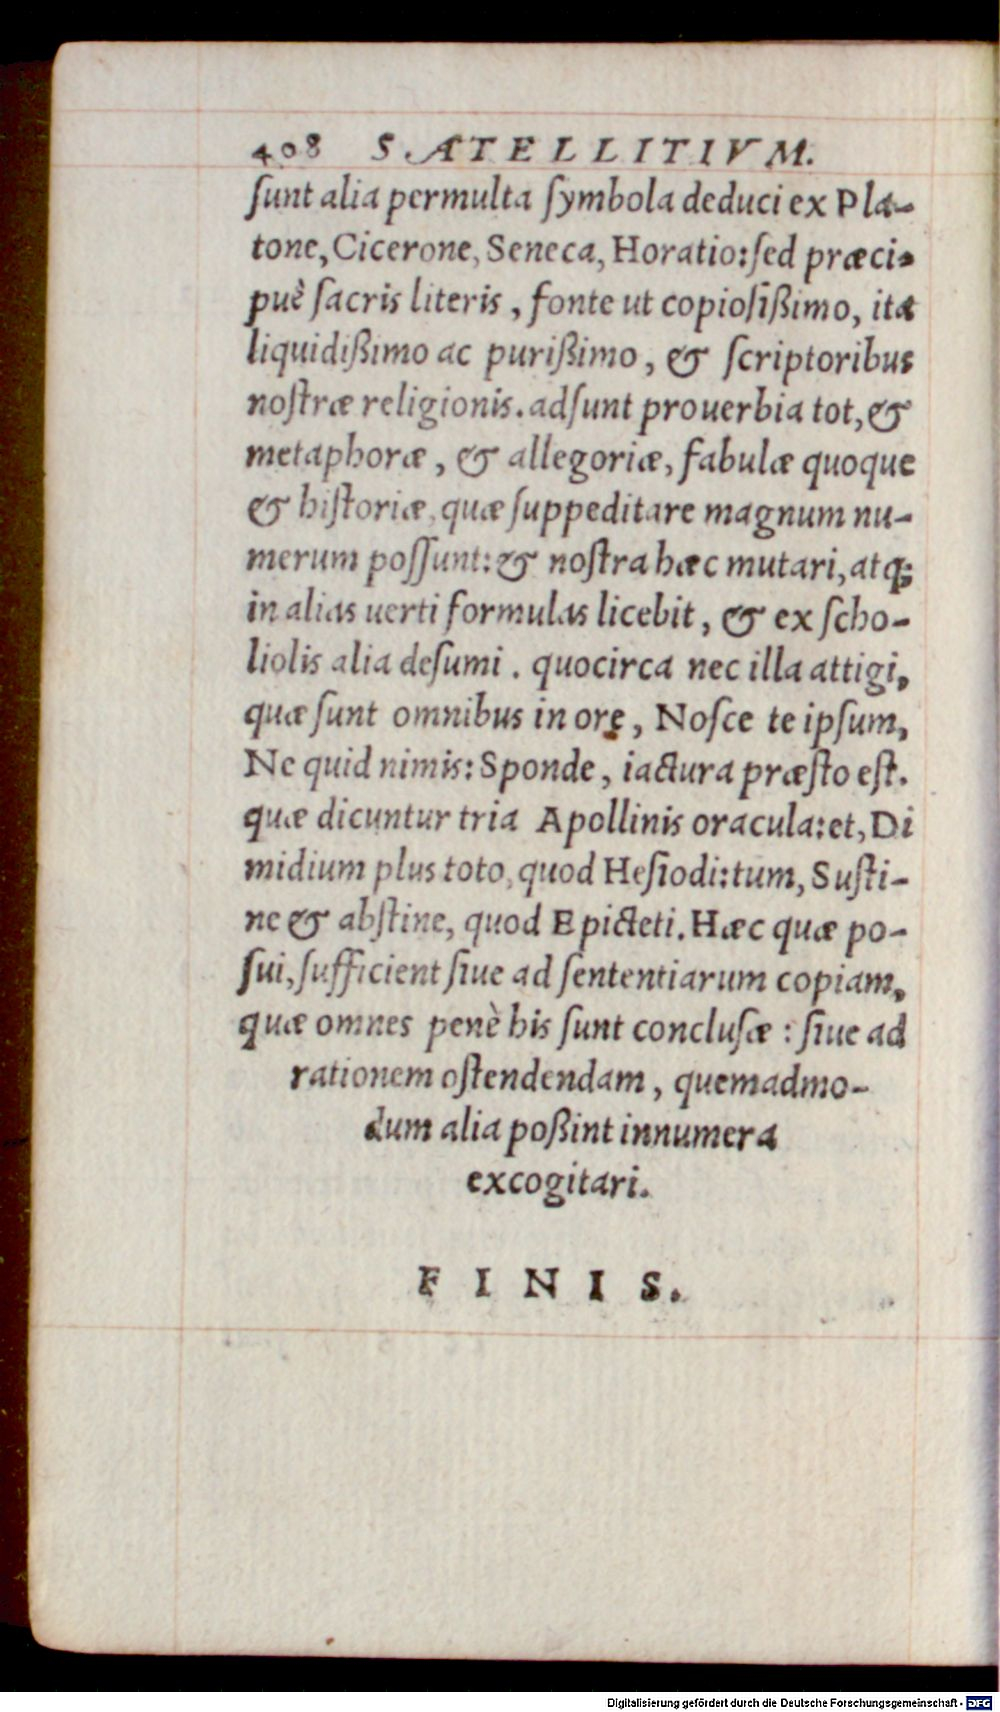 408 SATELLITIVM.
ſunt alia permulta ſymbola deduci ex Pla-
tone, Cicerone, Seneca, Horatio: ſed præci-
puè ſacris literis, fonte ut copioſißimo, ita
liquidißimo ac purißimo, & ſcriptoribus
noſtræ religionis. adſunt prouerbia tot, &
metaphoræ, & allegoriæ, fabulæ quoque
& hiſtoriæ, quæ ſuppeditare magnum nu-
merum poſſunt: & noſtra hæc mutari, atq;
in alias uerti formulas licebit, & ex ſcho-
liolis alia deſumi. quocirca nec illa attigi,
quæ ſunt omnibus in ore, Noſce te ipſum,
Ne quid nimis: Sponde, iactura præſto eſt.
quæ dicuntur tria Apollinis oracula: et, Di
midium plus toto, quod Heſiodi: tum, Suſti-
ne & abſtine, quod Epicteti. Hæc quæ po-
ſui, ſufficient ſiue ad ſententiarum copiam,
quæ omnes penè his ſunt concluſæ: ſiue ad
rationem oſtendendam, quemadmo-
dum alia poßint innumera
excogitari.
FINIS.
Digitalisierung gefördert durch die Deutsche Forschungsgemeinschaft - DFG